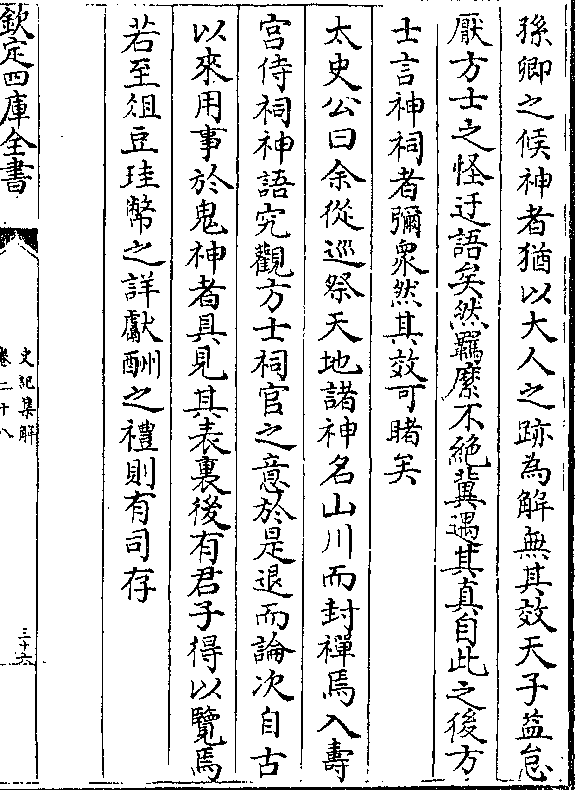 孫卿之候神者猶以大人之跡為解無其效天子益怠
厭方士之怪迂語矣然羈縻不絶冀遇其真自此之後方
士言神祠者彌衆然其效可睹矣
太史公曰余從巡祭天地諸神名山川而封禪焉入壽
宫侍祠神語究觀方士祠官之意於是退而論次自古
以來用事於鬼神者具見其表裏後有君子得以覽焉
若至俎豆珪幣之詳獻酬之禮則有司存
欽定四庫全書
史記集解
卷二十八
三十六